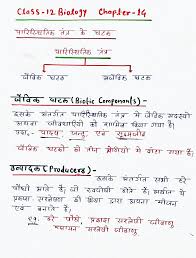 Class-12 Biology Chapter-14
पारिस्थितिक तंत्र के घटक
पारिस्थितिक तंत्र
जैविक घटक अजैविक घटक
जैविक घटक (Biotic Componants):-
इसके अंतर्गत पारिस्थितिक तंत्र में जैविक
जीवधारियों को शामिल किया गया है।
पादप, जन्तु एवं सूक्ष्मजीव
जैविक घटकों को तीन श्रेणियों में बांटा गया है।
उत्पादक (Producers)
इसके अंतर्गत सभी हरे
पौधे आते हैं, जो स्वपोषी होते हैं, अर्थात ये
प्रकाश संश्लेषण की क्रिया द्वारा अपना भोजन
बनाते हैं।
eg. हरे पौधे, प्रकाश संश्लेषी जीवाणु
रसायन संश्लेषी जीवाणु